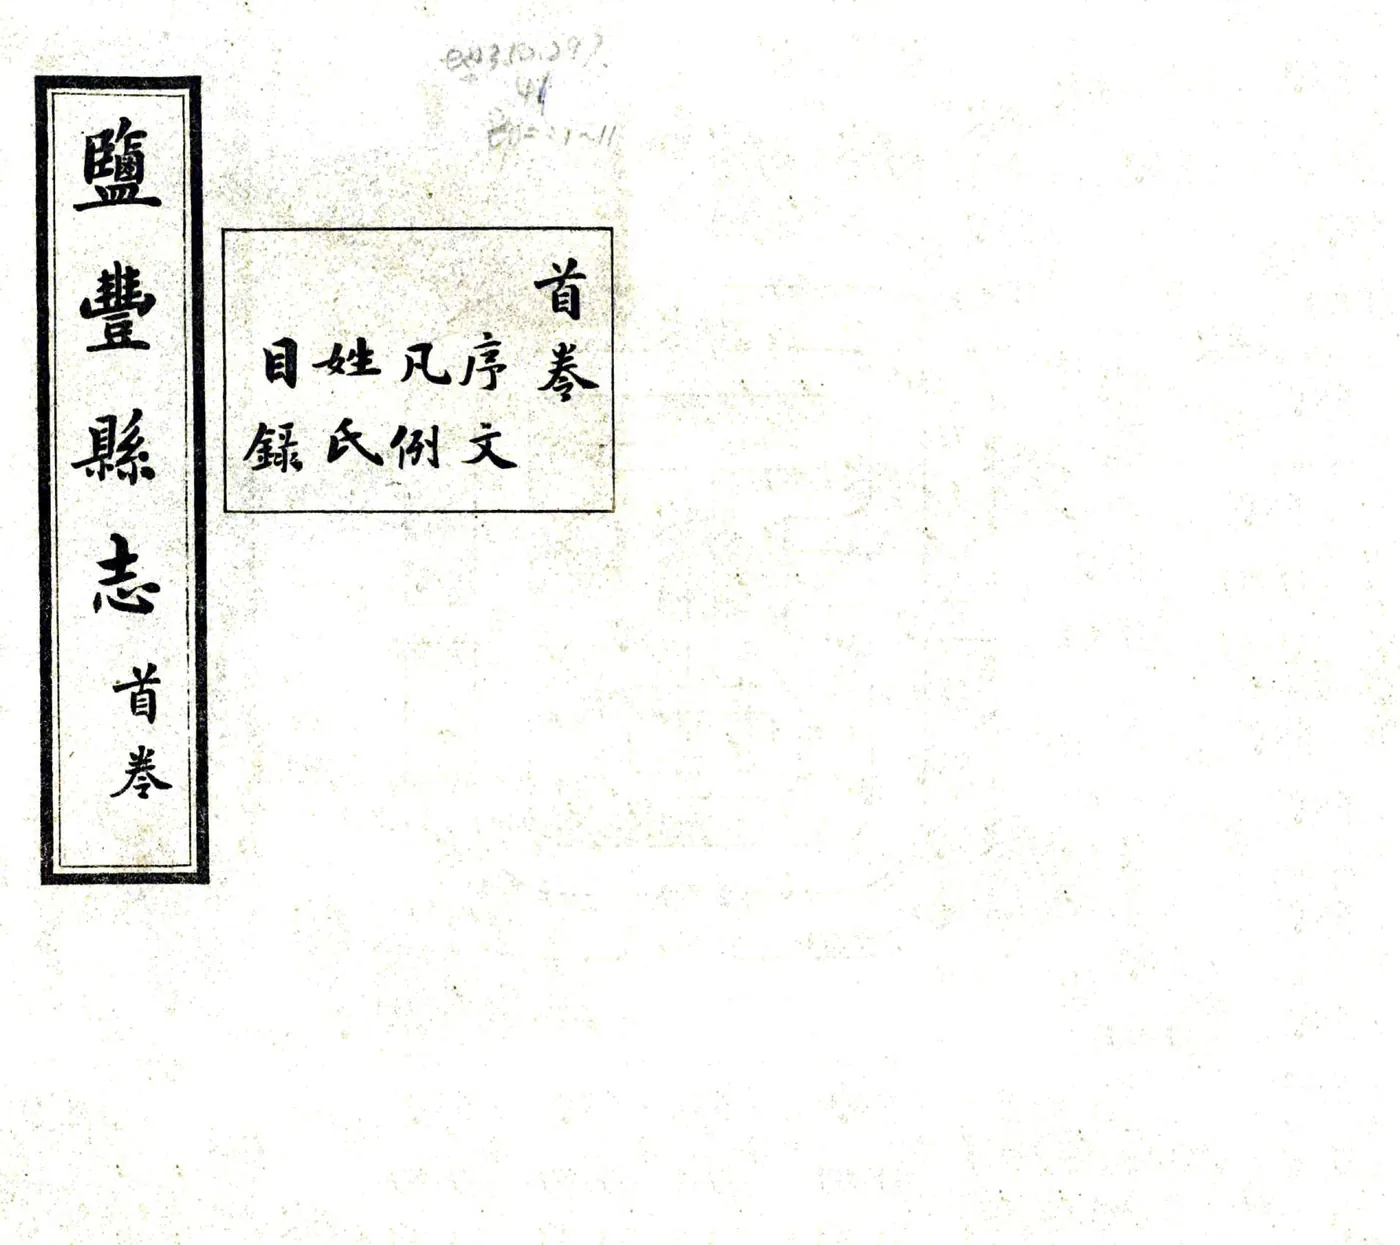 鹽豐縣志 首卷
首卷
序文
凡例
姓氏
目錄